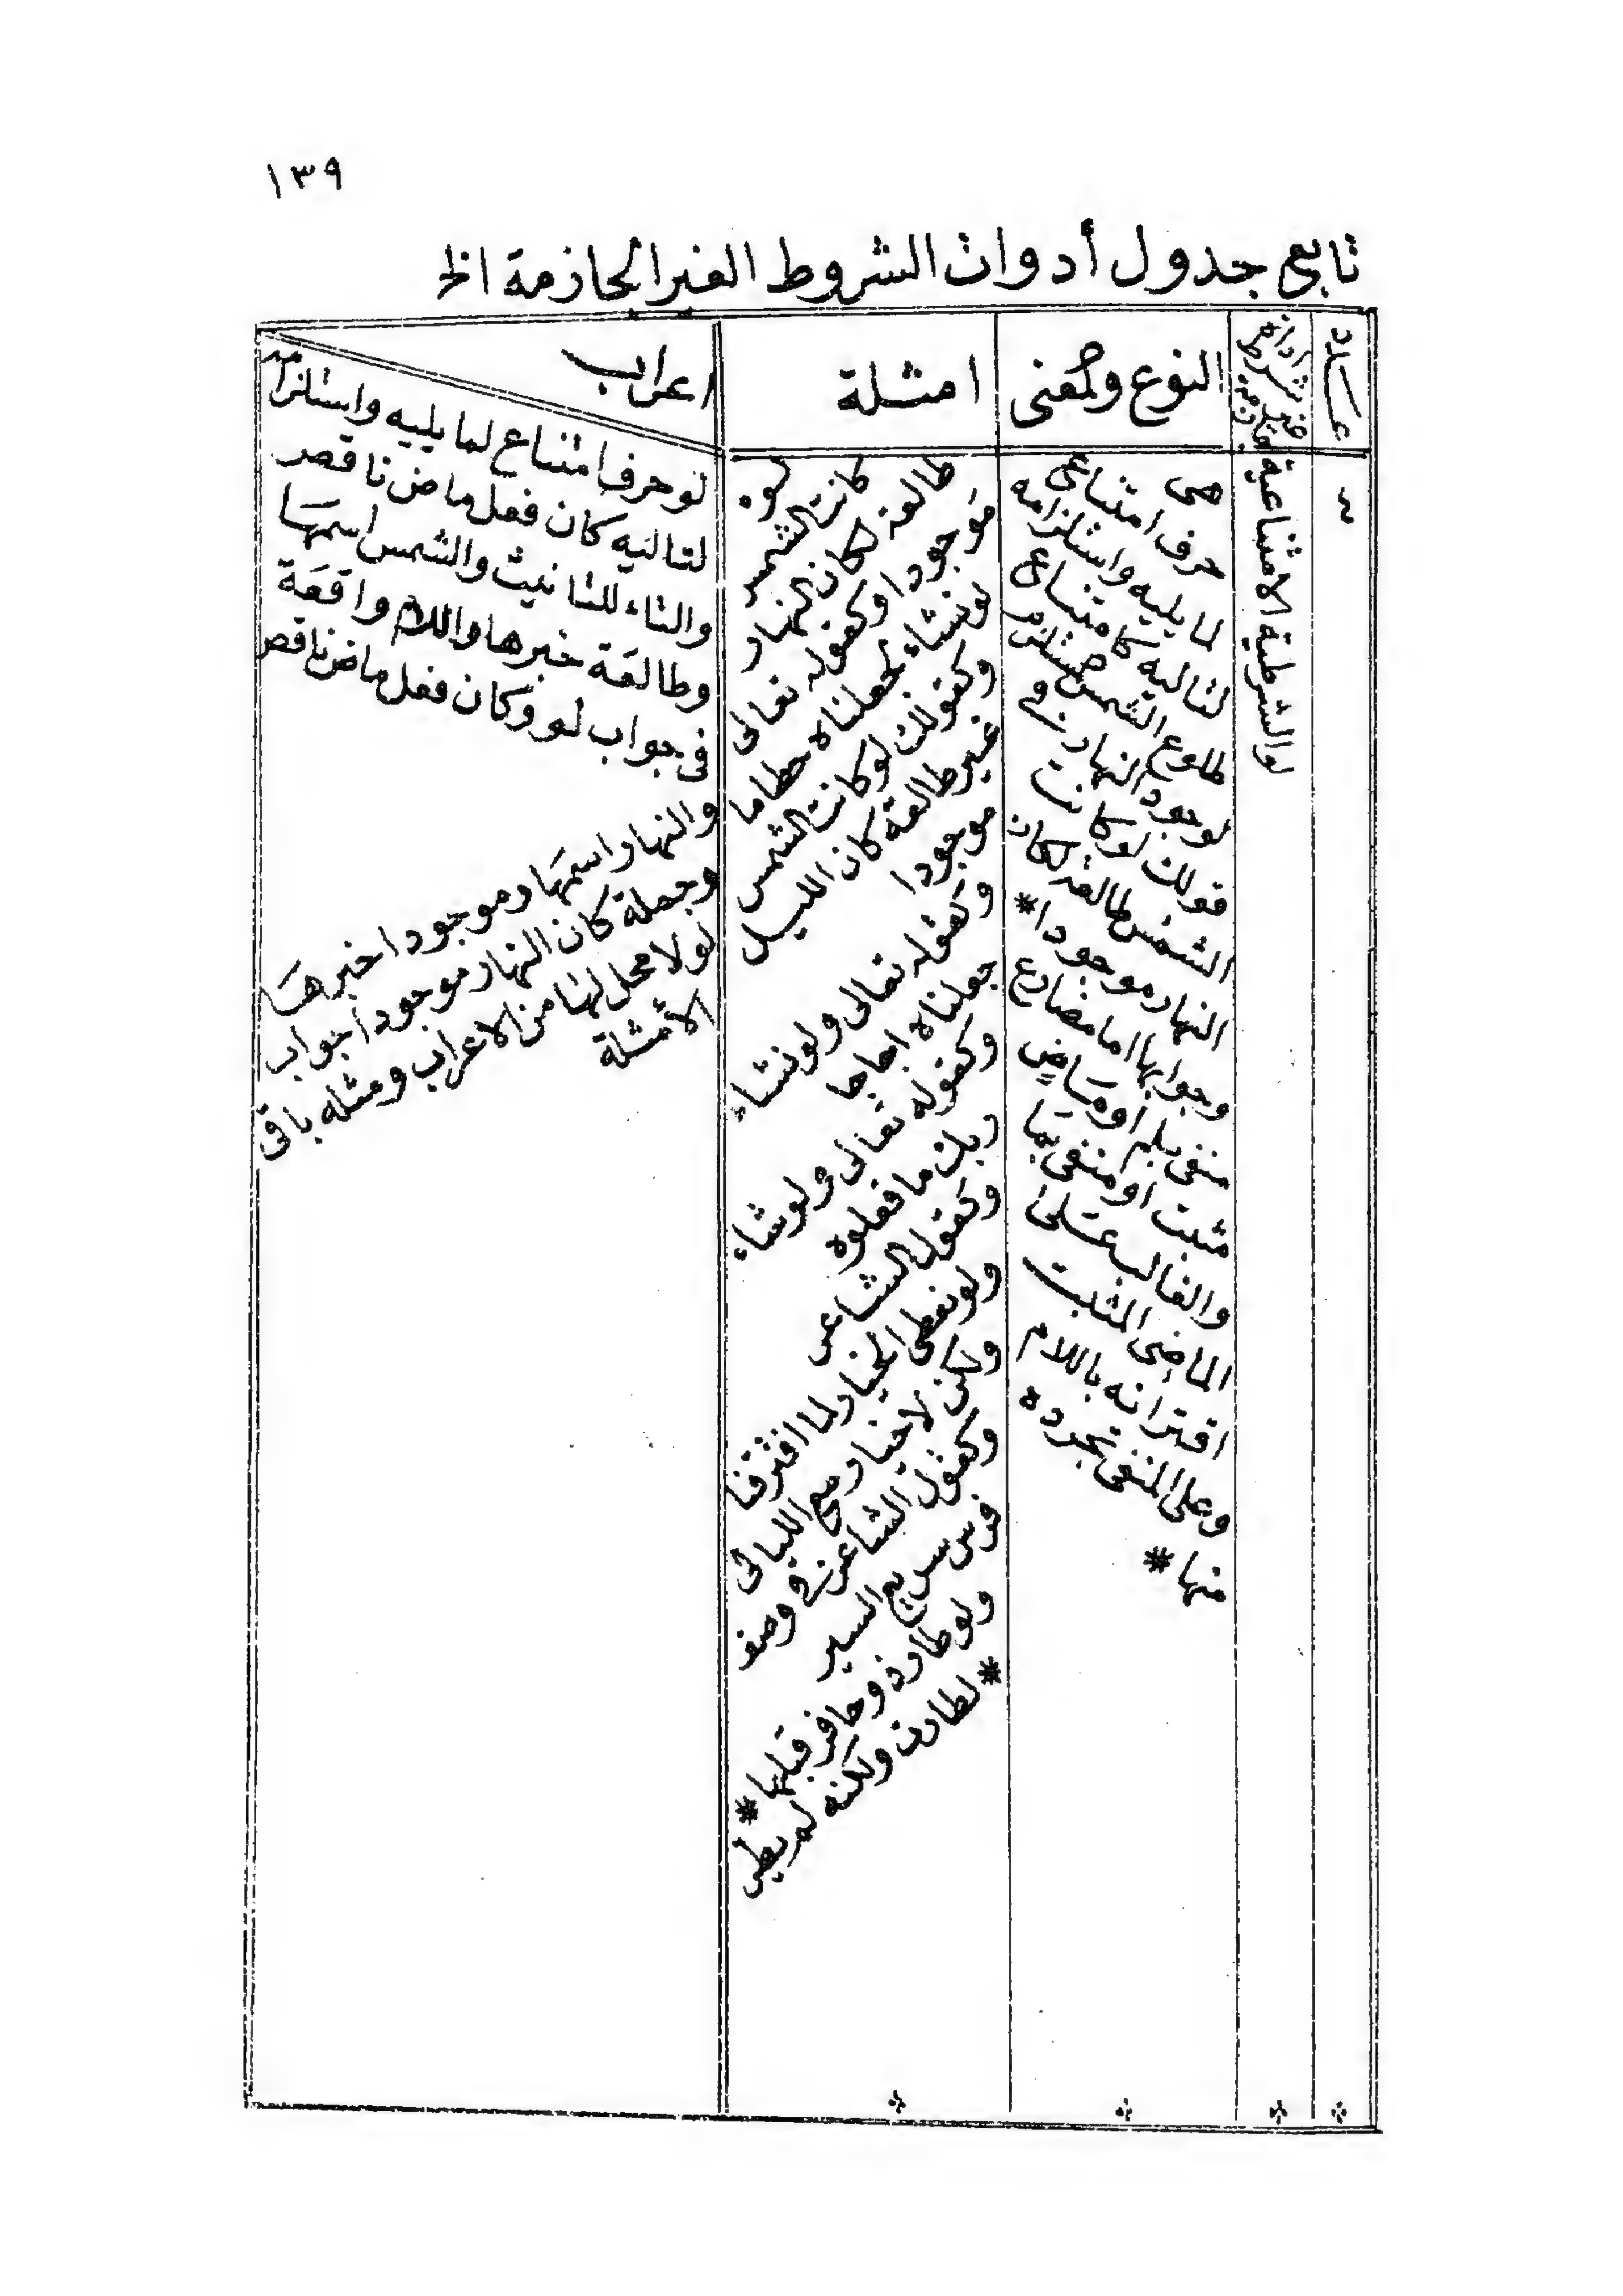 ١٣٩
تابع جدول أدوات الشروط الغير الجازمة الخ
عدد
اداة
غير شرط
جازمة
النوع والمعنى
امثلة
اعراب
٤
لو الشرطية الامتناعية
هى
حرف امتناعى
لما يليه واستلزامه
لتاليه كامتناع
طلوع الشمس مستلزم
لوجود النهار فى
قولك لو كانت
الشمس طالعة لكان
النهار موجودا *
وجوابها اما مضارع
منفى بلم او ماض
مثبت او منفى بما
والغالب على
الماضى المثبت
اقترانه باللام
وعلى المنفى تجرده
منها *
لو
كانت الشمس
طالعة لكان النهار
موجودا وكقوله تعالى
لو نشاء لجعلناه حطاما
وكقولك لو كانت الشمس
غير طالعة كان الليل
موجودا
وكقوله تعالى ولو نشاء
جعلناه اجاجا
وكقوله تعالى ولو شاء
ربك ما فعلوه
وكقول الشاعر
ولو نعطى الخيار لما افترقنا
ولكن لا خيار مع الليالى
وكقول الشاعر فى وصف
فرس سريع السير
ولو طار ذو حافر قبلها *
* لطارت ولكنه لم يطر
لو حرف امتناع لما يليه واستلزام
لتاليه كان فعل ماض ناقص
والتاء للتانيث والشمس اسمها
وطالعة خبرها واللام واقعة
فى جواب لو وكان فعل ماض ناقص
والنهار اسمها وموجودا خبرها
وجملة كان النهار موجودا جواب
لو لا محل لها من الاعراب ومثله باقى
الأمثلة